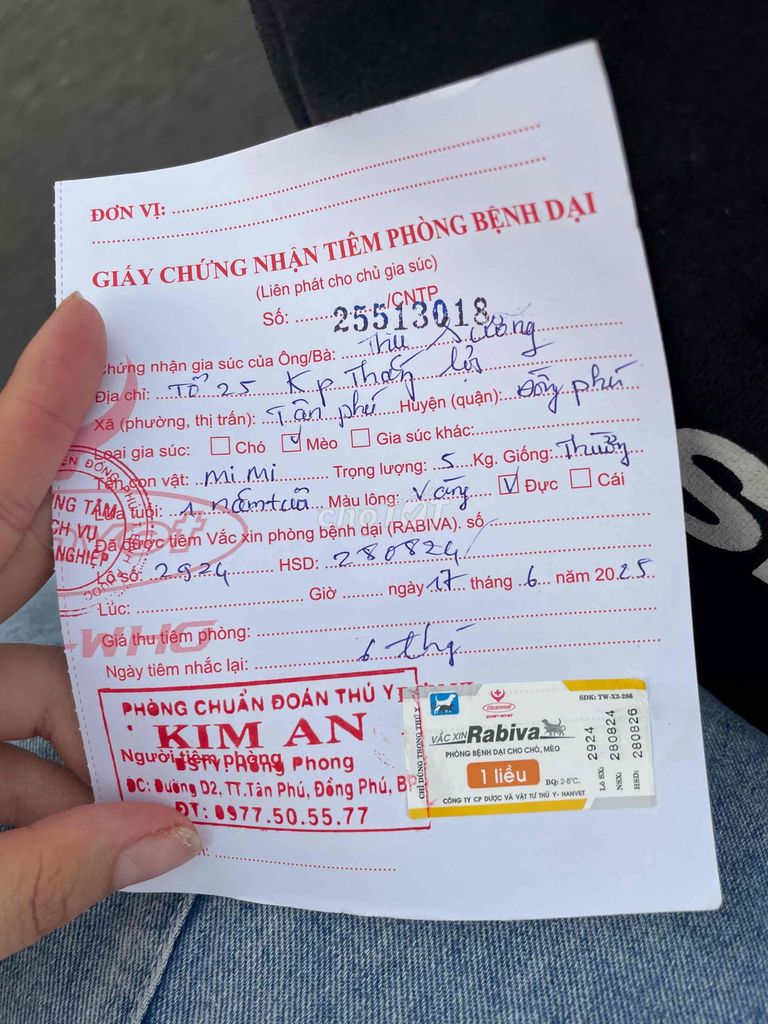 ĐƠN VỊ:
GIẤY CHỨNG NHẬN TIÊM PHÒNG BỆNH DẠI
(Liên phát cho chủ gia súc)
Số: 25513018 /CNTP
Chứng nhận gia súc của Ông/Bà: Thu Sương
Địa chỉ: Tổ 25 Kp Thắng lợi
Xã (phường, thị trấn): Tân phú Huyện (quận): Đồng phú
Loại gia súc: Chó Mèo Gia súc khác:
Tên con vật: mi mi Trọng lượng: 5 Kg. Giống: Thường
Lứa tuổi: 1 năm tuổi Màu lông: Vàng Đực Cái
Đã được tiêm Vắc xin phòng bệnh dại (RABIVA). số
Lô số: 2924 HSD: 280824
Lúc: Giờ ngày 17 tháng 6 năm 2025
Giá thu tiêm phòng:
Ngày tiêm nhắc lại: 6 thg
Người tiêm phòng
PHÒNG CHUẨN ĐOÁN THÚ Y
KIM AN
BSTY: Hồng Phong
ĐC: Đường D2, TT.Tân Phú, Đồng Phú, BP
ĐT: 0977.50.55.77
CHỈ DÙNG TRONG THÚ Y
SĐK: TW-X2-286
VẮC XIN Rabiva
PHÒNG BỆNH DẠI CHO CHÓ, MÈO
1 liều
BQ: 2-8°C.
CÔNG TY CP DƯỢC VÀ VẬT TƯ THÚ Y- HANVET
Lô SX: 2924
NSX: 280824
HSD: 280826
chợTỐT